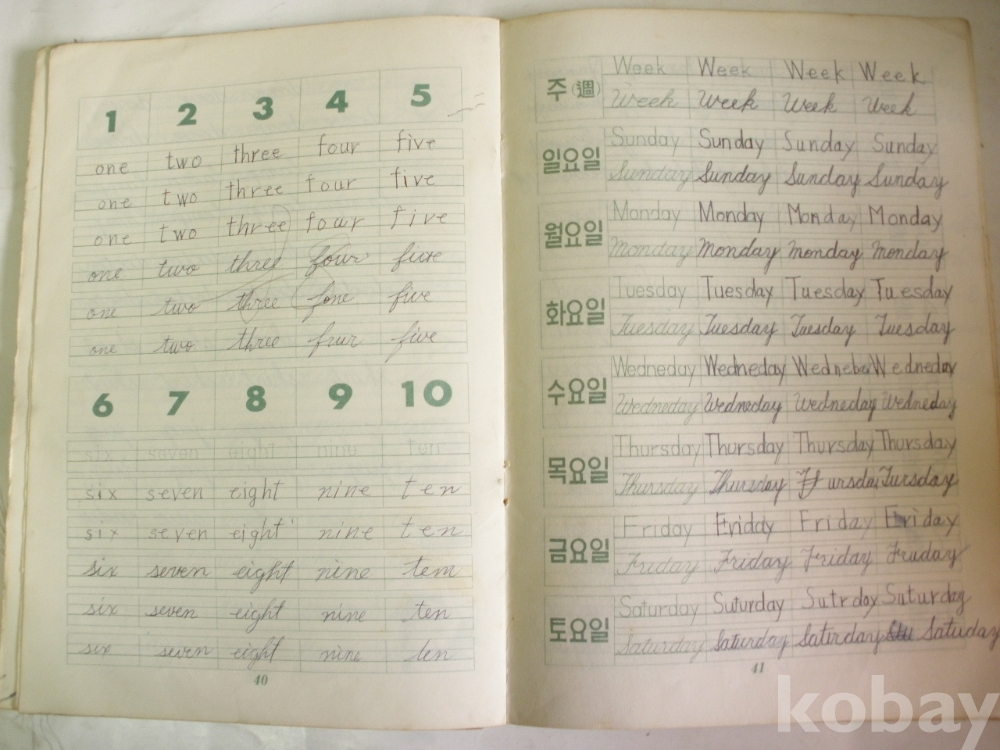 1 2 3 4 5
one two three four five
one two three four five
one two three four five
one two three four five
one two three fone five
one two three four five
6 7 8 9 10
six seven eight nine ten
six seven eight nine ten
six seven eight nine ten
six seven eight nine tem
six seven eight nine ten
six seven eight nine ten
40
주(週) Week Week Week Week
Week Week Week Week
일요일 Sunday Sunday Sunday Sunday
Sunday Sunday Sunday Sunday
월요일 Monday Monday Monday Monday
Monday Monday Monday Monday
화요일 Tuesday Tuesday Tuesday Tuesday
Tuesday Tuesday Tuesday Tuesday
수요일 Wedneday Wedneday Wednebei Wedneday
Wedneday Wedneday Wedneday Wedneday
목요일 Thursday Thursday Thursday Thursday
Thursday Thursday Tursday
금요일 Friday Friday Friday Friday
Friday Friday Friday Friday
토요일 Saturday Suturday Sutrday Suturday
Saturday Saturday Saturday Satuday
41
kobay